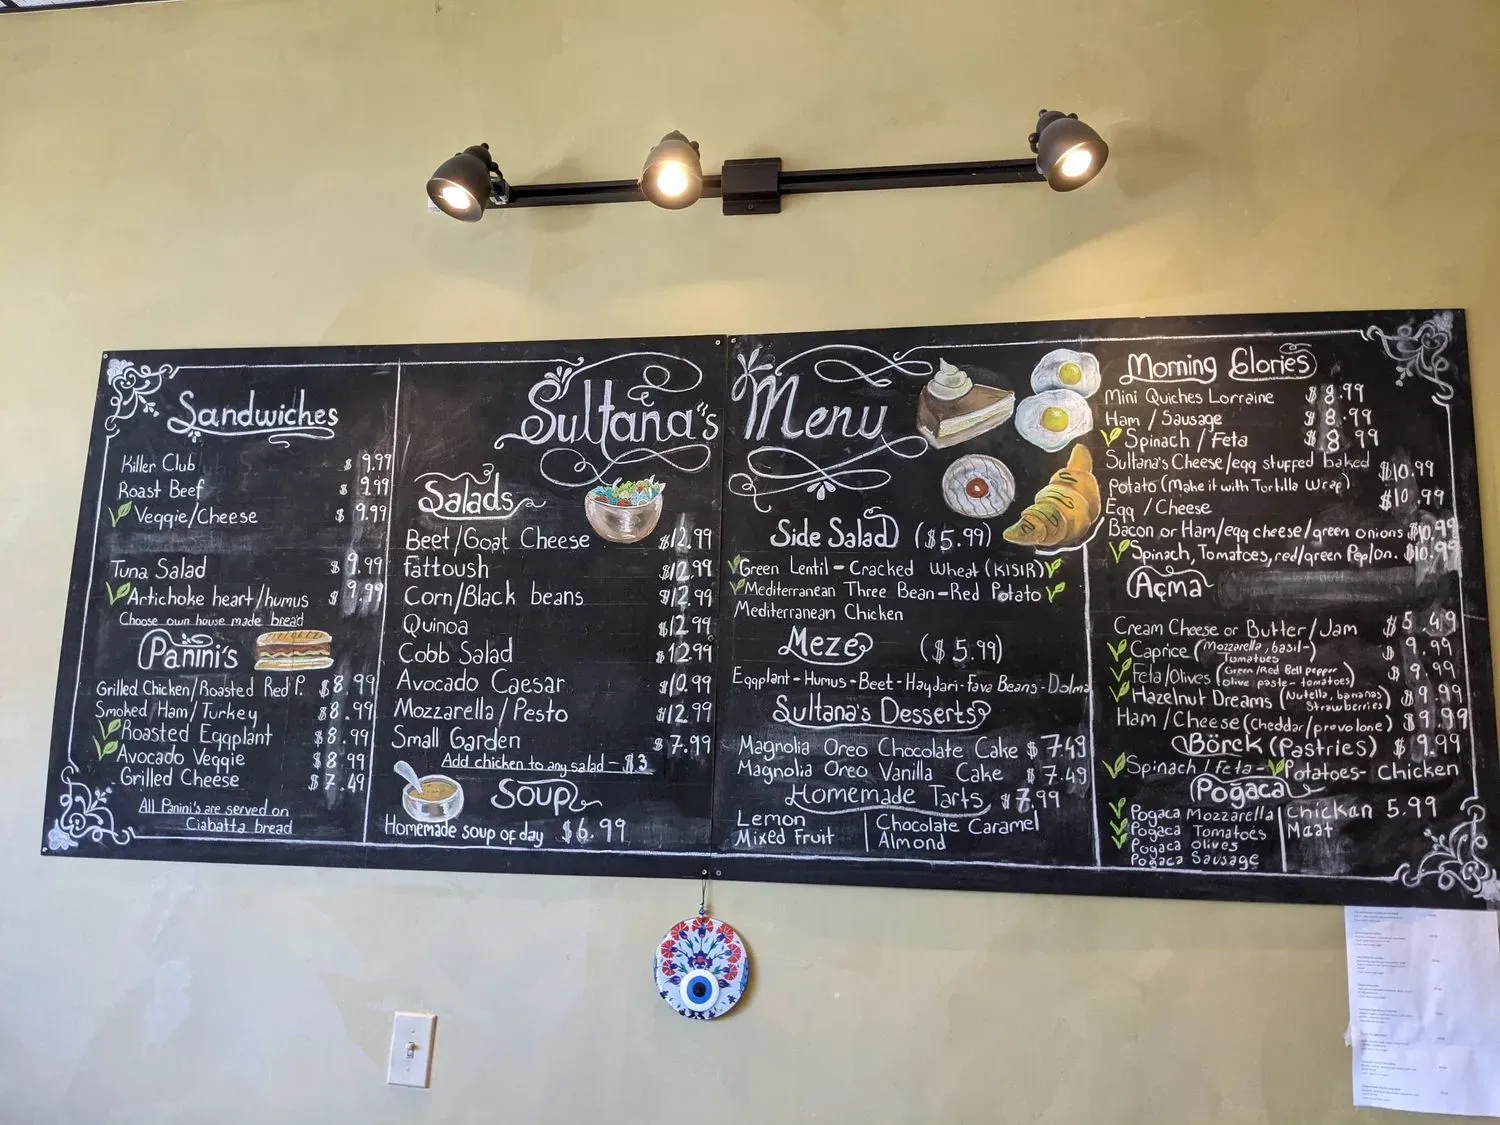 Sultana's Menu
Sandwiches
Killer Club $ 9.99
Roast Beef $ 9.99
Veggie/Cheese $ 9.99
Tuna Salad $ 9.99
Artichoke heart/humus $ 9.99
Choose own house made bread
Panini's
Grilled Chicken/Roasted Red P. $8.99
Smoked Ham/Turkey $8.99
Roasted Eggplant $8.99
Avocado Veggie $8.99
Grilled Cheese $7.49
All Panini's are served on
Ciabatta bread
Salads
Beet/Goat Cheese $12.99
Fattoush $12.99
Corn/Black beans $12.99
Quinoa $12.99
Cobb Salad $12.99
Avocado Caesar $10.99
Mozzarella/Pesto $12.99
Small Garden $7.99
Add chicken to any salad - $3
Soup
Homemade soup of day $6.99
Side Salad ($5.99)
Green Lentil - Cracked Wheat (KISIR)
Mediterranean Three Bean - Red Potato
Mediterranean Chicken
Meze ($5.99)
Eggplant - Humus - Beet - Haydari - Fava Beans - Dolma
Sultana's Desserts
Magnolia Oreo Chocolate Cake $7.49
Magnolia Oreo Vanilla Cake $7.49
Homemade Tarts $7.99
Lemon | Chocolate Caramel
Mixed Fruit | Almond
Morning Glories
Mini Quiches Lorraine $8.99
Ham / Sausage $8.99
Spinach / Feta $8.99
Sultana's Cheese/egg stuffed baked $10.99
Potato (Make it with Tortilla Wrap)
Egg / Cheese $10.99
Bacon or Ham/egg cheese/green onions $10.99
Spinach, Tomatoes, red/green Pep/on. $10.99
Açma
Cream Cheese or Butter/Jam $5.49
Caprice (Mozzarella, basil- Tomatoes $9.99
Feta/Olives (Green/Red Bell pepper olive paste-tomatoes) $9.99
Hazelnut Dreams (Nutella, bananas Strawberries) $9.99
Ham/Cheese (cheddar/provolone) $9.99
Börek (Pastries) $9.99
Spinach / Feta - Potatoes - Chicken
Pogaca
Pogaca Mozzarella | Chickan 5.99
Pogaca Tomatoes | Maat
Pogaca olives
Pogaca Sausage